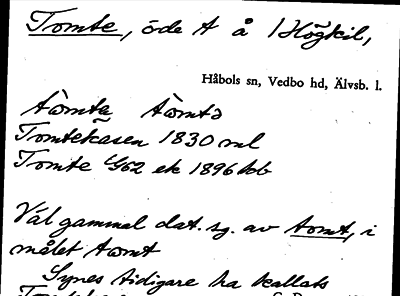 Tomte, öde t å 1 Högkil,
Håbols sn, Vedbo hd, Älvsb. l.
tòmta tòmtə
Tomtekasen 1830 ml
Tomte G62 ek 1896 kb
Väl gammal dat. sg. av tomt, i
målet tomt
Synes tidigare ha kallats